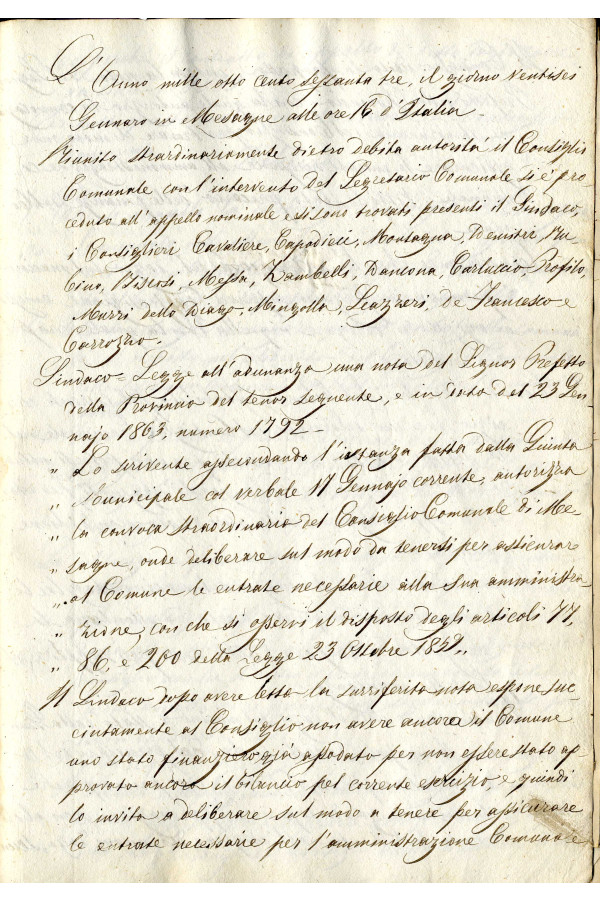 L'Anno mille otto cento sessanta tre, il giorno ventisei
Gennaro in Mesagne alle ore 16 d'Italia
Riunito straordinariamente dietro debita autorità il Consiglio
Comunale con l'intervento del Segretario Comunale si è pro
ceduto all'appello nominale e si sono trovati presenti il Sindaco,
i Consiglieri Cavaliere, Capodieci, Montagna, Demitri, Ru
bino, Biscosi, Messa, Zambelli, Dancona, Carluccio, Profilo,
Murri dello Diago, Mingolla, Scazzeri, de Francesco e
Carrozzo.
Sindaco = Legge all'adunanza una nota del Signor Prefetto
della Provincia del tenor seguente, e in data del 23 Gen
najo 1863, numero 1792 -
" Lo scrivente assecondando l'istanza fatta dalla Giunta
" Municipale col verbale 17 Gennajo corrente, autorizza
" la convoca straordinaria del Consiglio Comunale di Me
" sagne, onde deliberare sul modo da tenersi per assicurare
" al Comune le entrate necessarie alla sua amministra
" zione, con che si osservi il disposto degli articoli 77,
" 86, e 200 della Legge 23 Ottobre 1859,,
Il Sindaco dopo avere letta la surriferita nota espone suc
cintamente al Consiglio non avere ancora il Comune
uno stato finanziero già apodato per non essere stato ap
provato ancora il bilancio pel corrente esercizio, e quindi
lo invita a deliberare sul modo a tenere per assicurare
le entrate necessarie per l'amministrazione Comunale